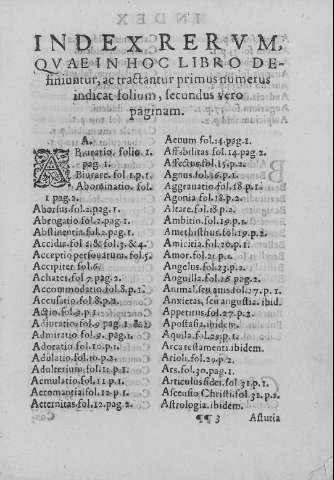 INDEX RERVM,
QVAE IN HOC LIBRO DE-
finiuntur, ac tractantur primus numerus
indicat folium, secundus vero
paginam.
A.
Biuratio. folio 1.
pag. 1.
Biurare. fol 1.p 1.
Abominatio. fol.
1 pag.2.
Aborsus fol.2.pag.1.
Abrogatio fol.2.pag.1.
Abstinentia fol.2.pag.1.
Accidia fol.2.& fol.3.& 4.
Acceptio personarum. fol.5.
Accipiter fol.6.
Achates fol.7 pag.2.
Accommodatio fol.8.p.1.
Accusatio fol.8.p.2.
Actio fol.9.p.1.
Adiuratio fol.9 pag.1 & 2.
Admiratio fol.9. pag.1.
Adoratio fol.10.p.1.
Adulatio fol.10.p.2.
Adulterium fol.11.p.1.
Aemulatio fol.11.p.1.
Aeromantia fol.12.p.1.
Aeternitas fol.12.pag 2.
Aeuum fol.14.pag 1.
Affabilitas fol.14.pag 2.
Affectus fol.15.p.2.
Agnus fol.16.p.1.
Aggrauatio fol.18.p.1.
Agonia fol.18.p.2.
Altare fol.18.p.2.
Ambitio fol.19.p.1.
Amethisthus fol.19.p.2.
Amicitia fol.20.p.1.
Amor fol.21.p.1.
Angelus fol.23.p.2.
Anguilla fol.26 pag.2.
Animal seu animus fol.27.p.1.
Anxietas, seu angustia. ibid.
Appetitus fol.27.p.2.
Apostasia. ibidem.
Aquila fol.29.p.1.
Arca testamenti. ibidem.
Arioli fol.29.p 2.
Ars. fol.30.pag.1.
Articulus fidei. fol 31.p 1.
Ascensio Christi. fol 31.p 2.
Astrologia. ibidem.
¶¶ 3 Astutia